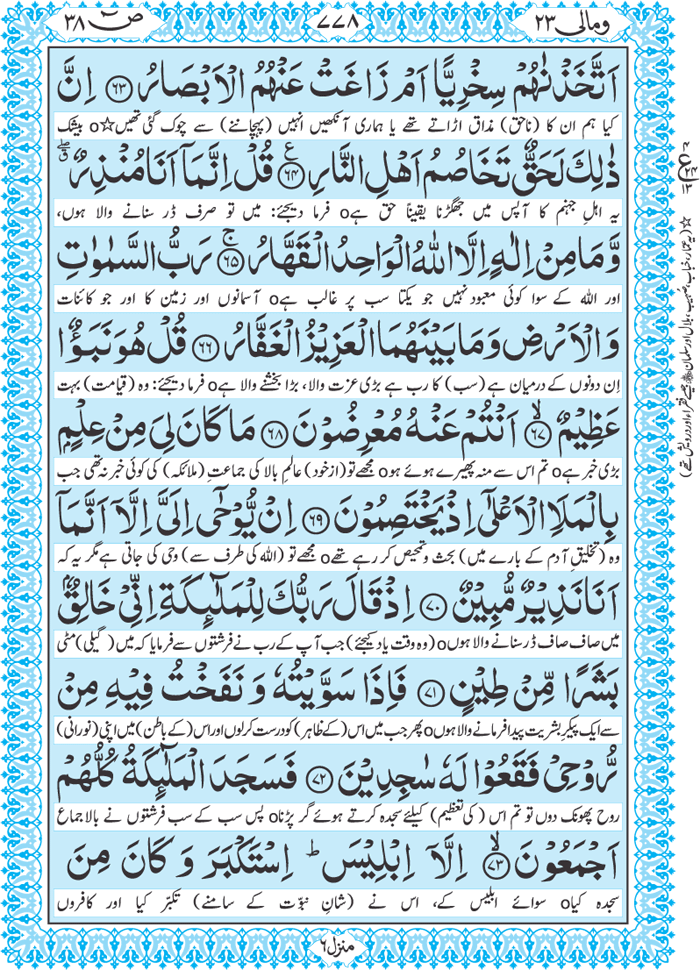 ومالی ۲۳
۷۷۸
صٓ ۳۸
اَتَّخَذْنٰهُمْ سِخْرِيًّا اَمْ زَاغَتْ عَنْهُمُ الْاَبْصَارُ ﴿۶۳﴾ اِنَّ
کیا ہم ان کا (ناحق) مذاق اڑاتے تھے یا ہماری آنکھیں انہیں (پہچاننے) سے چوک گئی تھیں☆o بیشک
ذٰلِكَ لَحَقٌّ تَخَاصُمُ اَهْلِ النَّارِ ﴿۶۴﴾ ع قُلْ اِنَّمَاۤ اَنَا مُنْذِرٌ
یہ اہلِ جہنم کا آپس میں جھگڑنا یقیناً حق ہےo فرما دیجئے: میں تو صرف ڈر سنانے والا ہوں،
وَّمَا مِنْ اِلٰهٍ اِلَّا اللّٰهُ الْوَاحِدُ الْقَهَّارُ ﴿۶۵﴾ ج رَبُّ السَّمٰوٰتِ
اور اللہ کے سوا کوئی معبود نہیں جو یکتا سب پر غالب ہےo آسمانوں اور زمین کا اور جو کائنات
وَالْاَرْضِ وَمَا بَيْنَهُمَا الْعَزِيْزُ الْغَفَّارُ ﴿۶۶﴾ قُلْ هُوَ نَبَؤٌا
اِن دونوں کے درمیان ہے (سب) کا رب ہے بڑی عزت والا، بڑا بخشنے والا ہےo فرما دیجئے: وہ (قیامت) بہت
عَظِيْمٌ ﴿۶۷﴾ لا اَنْتُمْ عَنْهُ مُعْرِضُوْنَ ﴿۶۸﴾ مَا كَانَ لِيَ مِنْ عِلْمٍۭ
بڑی خبر ہےo تم اس سے منہ پھیرے ہوئے ہوo مجھے تو (ازخود) عالمِ بالا کی جماعتِ (ملائکہ) کی کوئی خبر نہ تھی جب
بِالْمَلَاِ الْاَعْلٰۤى اِذْ يَخْتَصِمُوْنَ ﴿۶۹﴾ اِنْ يُّوْحٰۤى اِلَيَّ اِلَّاۤ اَنَّمَاۤ
وہ (تخلیقِ آدم کے بارے میں) بحث و تمحیص کر رہے تھےo مجھے تو (اللہ کی طرف سے) وحی کی جاتی ہے مگر یہ کہ
اَنَا نَذِيْرٌ مُّبِيْنٌ ﴿۷۰﴾ اِذْ قَالَ رَبُّكَ لِلْمَلٰٓئِكَةِ اِنِّيْ خَالِقٌۢ
میں صاف صاف ڈر سنانے والا ہوںo (وہ وقت یاد کیجئے) جب آپ کے رب نے فرشتوں سے فرمایا کہ میں (گیلی) مٹی
بَشَرًا مِّنْ طِيْنٍ ﴿۷۱﴾ فَاِذَا سَوَّيْتُهٗ وَ نَفَخْتُ فِيْهِ مِنْ
سے ایک پیکرِ بشریت پیدا فرمانے والا ہوںo پھر جب میں اس (کے ظاہر) کو درست کر لوں اور اس (کے باطن) میں اپنی (نورانی)
رُّوْحِيْ فَقَعُوْا لَهٗ سٰجِدِيْنَ ﴿۷۲﴾ فَسَجَدَ الْمَلٰٓئِكَةُ كُلُّهُمْ
روح پھونک دوں تو تم اس (کی تعظیم) کیلئے سجدہ کرتے ہوئے گر پڑناo پس سب کے سب فرشتوں نے بالاجماع
اَجْمَعُوْنَ ﴿۷۳﴾ لا اِلَّاۤ اِبْلِيْسَ ؕ اِسْتَكْبَرَ وَ كَانَ مِنَ
سجدہ کیاo سوائے ابلیس کے، اس نے (شانِ نبوّت کے سامنے) تکبّر کیا اور کافروں
☆(یہ عمار، خباب، صہیب، بلال اور سلمان ؓ جیسے فقراء اور درویش تھے)
منزل ۶